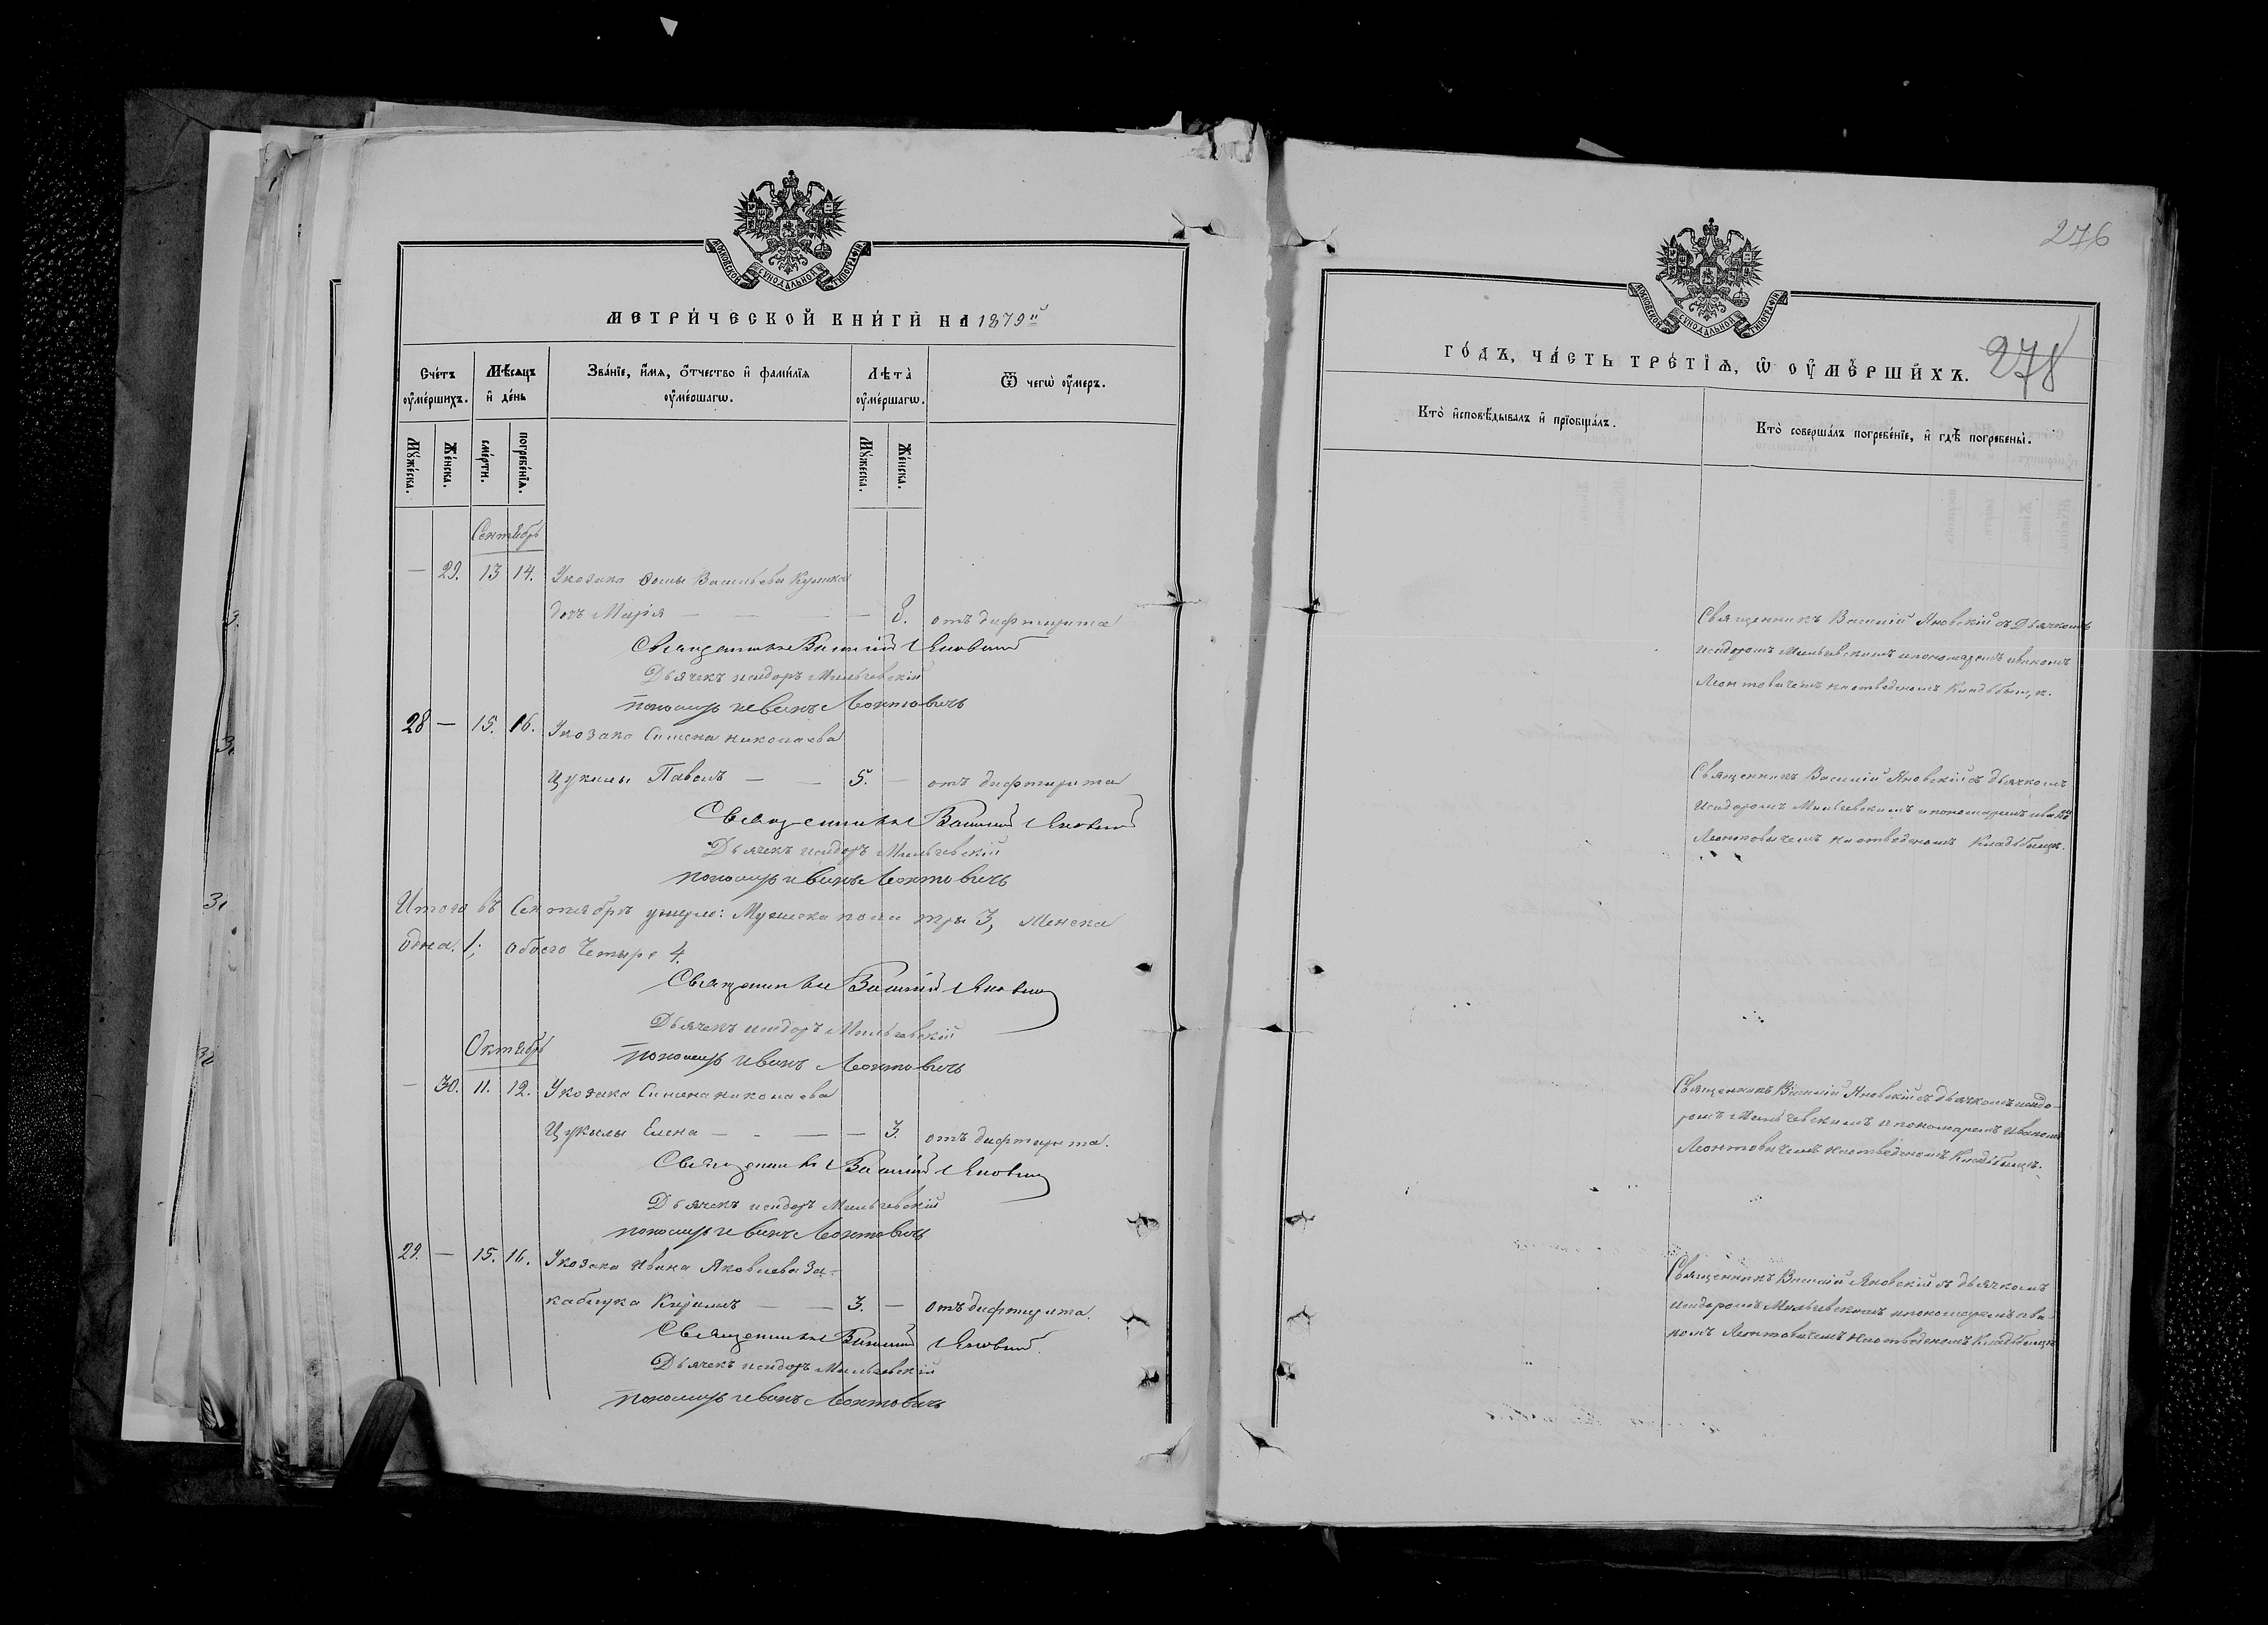 МОСКОВСКОЙ СѴНОДАЛЬНОЙ ТИПОГРАФІИ
МЕТРИ́ЧЕСКОЙ КНИ́ГИ НА 1879й
Сче́тъ оу҆ме́ршихъ.
Мѣ́сяцъ и҆ де́нь
Зва́нїе, и҆́мя, ѻ҆́тчество и҆ фами́лїя оу҆ме́ршагѡ.
Лѣта̀ оу҆ме́ршагѡ.
Ѿ чегѡ̀ оу҆́меръ.
Мꙋ́жеска.
Же́нска.
сме́рти.
погребе́нїѧ.
Мꙋ́жеска.
Же́нска.
Сентябрь
— 29. 13 14. У козака Ѳомы Васильева Кулика
дочь Марія — — — 8. отъ дифтерита
Священникъ Василій Яновскій
Дьячекъ Исидоръ Мильчевскій
Пономарь Иванъ Леонтовичъ
28 — 15. 16. У козака Симена Николаева
Цукилы Павелъ — — 5. — отъ дифтерита
Священникъ Василий Яновский
Дьячекъ Исидоръ Мильчевскій
Пономарь Иванъ Леонтовичъ
Итого въ Сентябрѣ умерло: Мужеска пола три 3, Женска
одна. 1; обоего Четыре 4.
Священникъ Василій Яновский
Дьячекъ Исидоръ Мильчевскій
Пономарь Иванъ Леонтовичъ
Октябрь
— 30. 11. 12. У козака Симена Николаева
Цукилы Елена — - — — 3. отъ дифтерита.
Священникъ Василій Яновский
Дьячекъ Исидоръ Мильчевскій
Пономарь Иванъ Леонтовичъ
29. — 15. 16. У козака Ивана Яковлева За-
каблука Кирилъ — — 3. — отъ дифтерита.
Священникъ Василий Яновский.
Дьячекъ Исидоръ Мильчевскій
Пономарь Иванъ Леонтовичъ
276
МОСКОВСКОЙ СѴНОДАЛЬНОЙ ТИПОГРАФІИ
ГО́ДЪ, ЧА́СТЬ ТРЕ́ТЇѦ, Ѡ҆ ОУ҆МЕ́РШИХЪ.
278
Кто̀ и҆сповѣ́дывалъ и҆ прїобща́лъ.
Кто̀ соверша́лъ погребе́нїе, и҆ гдѣ̀ погребены̀.
Священникъ Василій Яновскій съ Дьячкомъ
Исидоромъ Мильчевскимъ и пономаремъ Иваномъ
Леонтовичемъ на отведеномъ Кладбищѣ.
Священникъ Василій Яновскій съ дьячкомъ
Исидоромъ Мильчевскимъ и пономаремъ Иваномъ
Леонтовичемъ на отведеномъ Кладбищѣ.
Священникъ Василій Яновскій съ дьячкомъ Исидо-
ромъ Мильчевскимъ и пономаремъ Иваномъ
Леонтовичемъ на отведеномъ Кладбищѣ.
Священникъ Василій Яновскій съ дьячкомъ
Исидоромъ Мильчевскимъ и пономаремъ Ива-
номъ Леонтовичемъ на отведеномъ Кладбищѣ